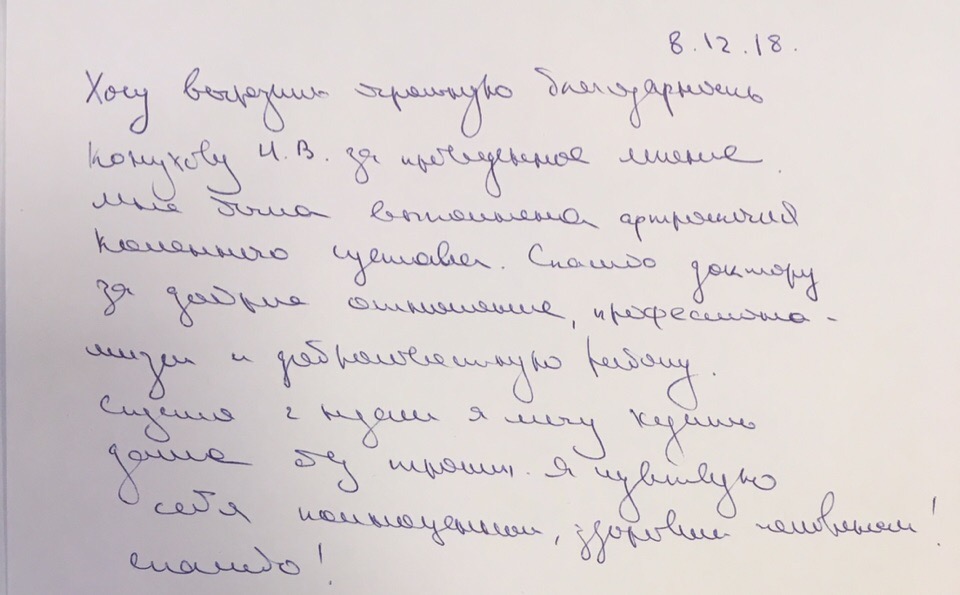 8.12.18.
Хочу выразить огромную благодарность
Кожухову И.В. за проведенное лечение.
Мне была выполнена артроскопия
коленного сустава. Спасибо доктору
за доброе отношение, профессиона-
лизм и добросовестную работу.
Спустя 2 недели я могу ходить
даже без трости. Я чувствую
себя полноценным, здоровым человеком!
Спасибо!